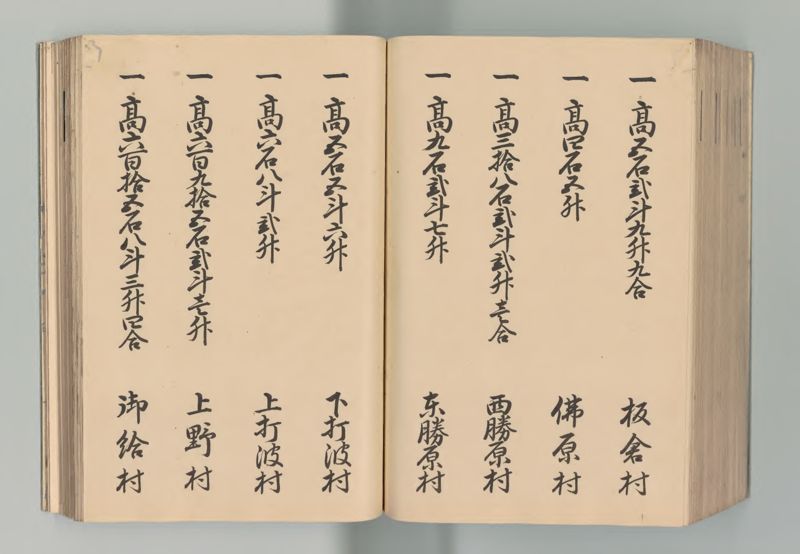 一 高五石弐斗九升九合 板倉村
一 高四石五升 佛原村
一 高三拾八石弐斗弐升壱合 西勝原村
一 高九石弐斗七升 东勝原村
一 高五石五斗六升 下打波村
一 高六石八斗弐升 上打波村
一 高六百九拾五石弐斗壱升 上野村
一 高六百拾五石八斗三升四合 御給村